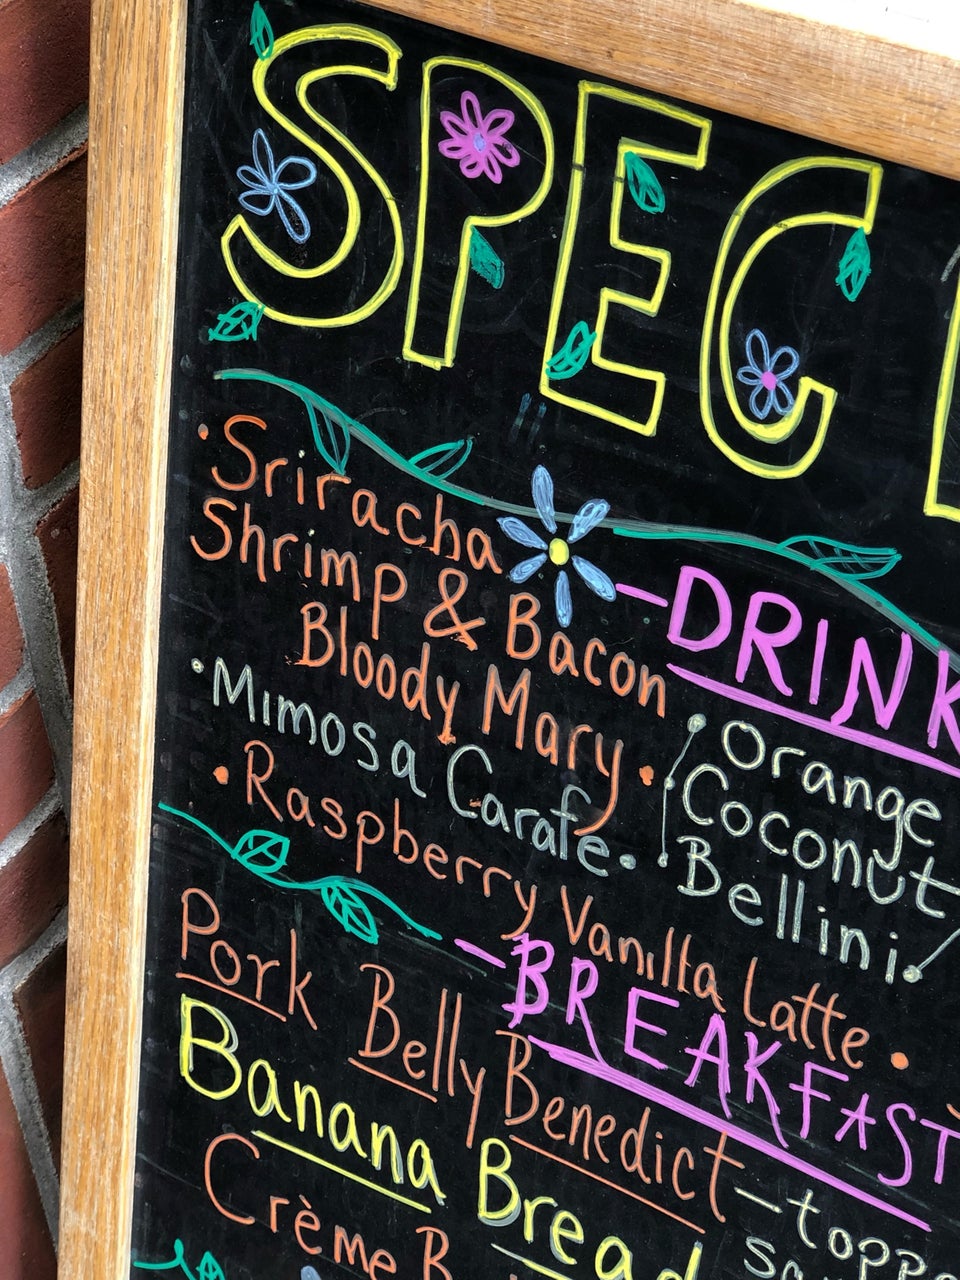 SPEC
-DRINK
• Sriracha
Shrimp & Bacon
Bloody Mary •
• Mimosa Carafe •
Orange
Coconut
Bellini
• Raspberry Vanilla Latte •
-BREAKFAST
Pork Belly Benedict -
Banana Bread
Crème